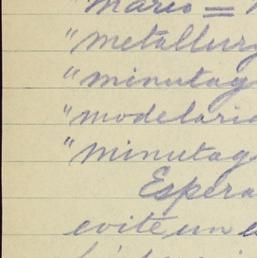 "Mario =
"metallurg
"minutag
"modelaria
"minutag
Espera
evite un e